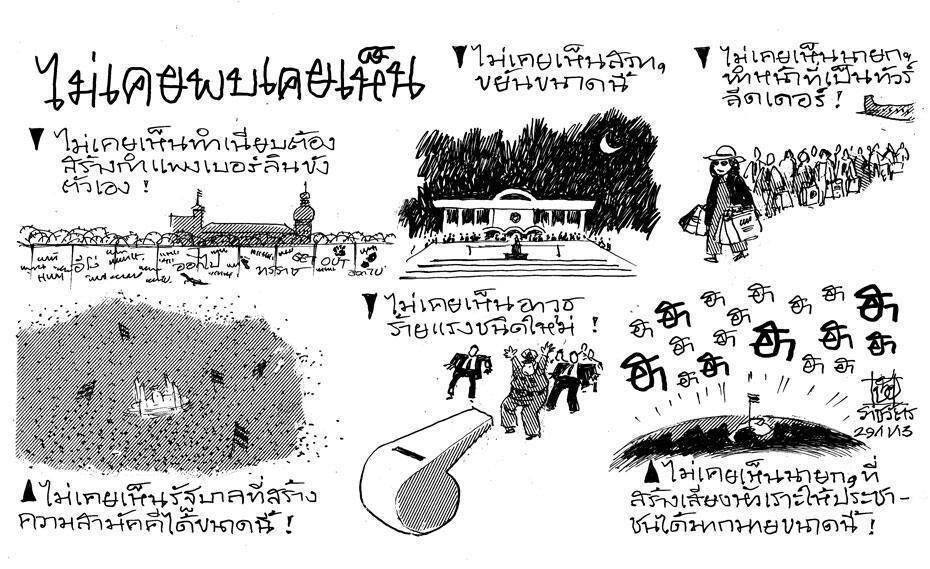 ไม่เคยพบเคยเห็น
ไม่เคยเห็นทำเนียบต้อง
สร้างกำแพงเบอร์ลินขัง
ตัวเอง !
ออกไป
ทรราช
GET
OUT
ออกไป
ไม่เคยเห็นสภาฯ
ขยันขนาดนี้
ไม่เคยเห็นนายกฯ
ทำหน้าที่เป็นทัวร์
ลีดเดอร์ !
ไม่เคยเห็นรัฐบาลที่สร้าง
ความสามัคคีได้ขนาดนี้ !
ไม่เคยเห็นอาวุธ
ร้ายแรงชนิดใหม่ !
ฮา ฮา ฮา ฮา ฮา ฮา
ฮา ฮา ฮา ฮา ฮา ฮา
ฮา ฮา ฮา ฮา ฮา
ไม่เคยเห็นนายกฯ ที่
สร้างเสียงหัวเราะให้ประชา-
ชนได้มากมายขนาดนี้ !